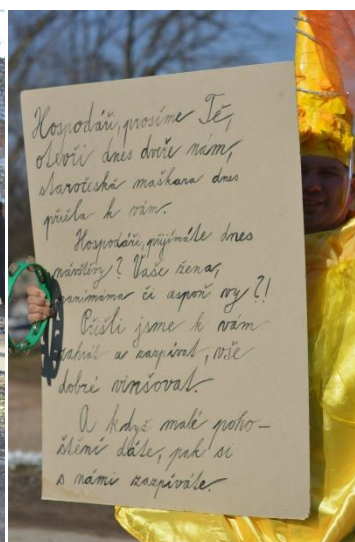 Hospodáři, prosíme Tě,
otevři dnes dveře nám,
staročeská maškara dnes
přišla k vám.
Hospodáři, přijímáte dnes
návštěvy? Vaše žena,
panímáma či aspoň vy?!
Přišli jsme k vám
zahrát a zazpívat, vše
dobré vinšovat.
A když malé poho-
štění dáte, pak si
s námi zazpíváte.